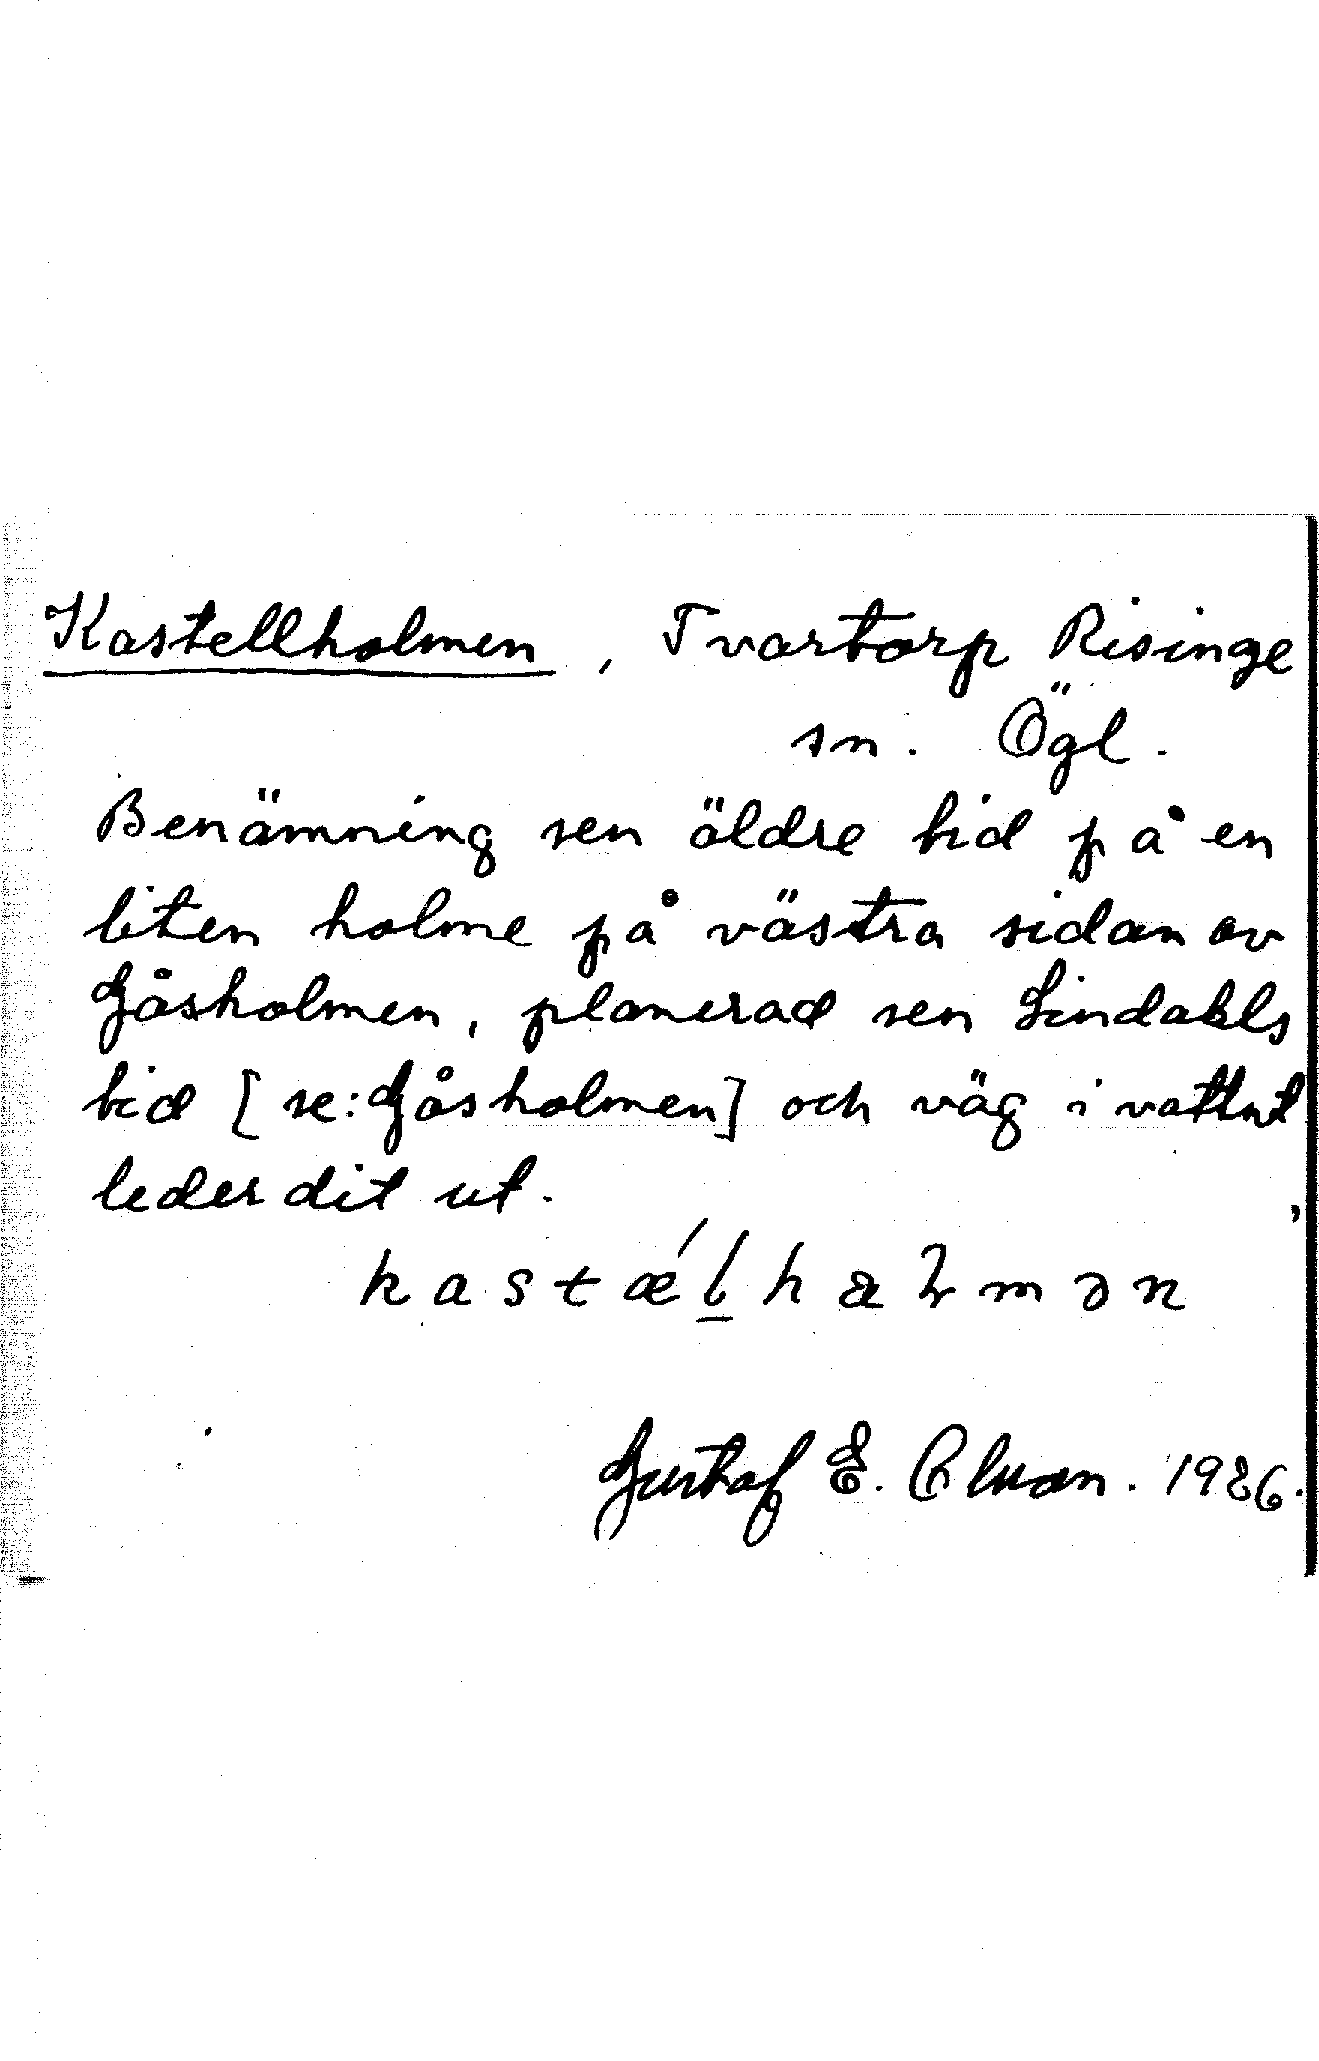 Kastellholmen, Tvartorp Risinge
sn. Ögl.
Benämning sen äldre tid på en
liten holme på västra sidan av
Gåsholmen, planerad sen Lindahls
tid [se: Gåsholmen] och väg i vattnet
leder dit ut.
Gustaf E. 1926.